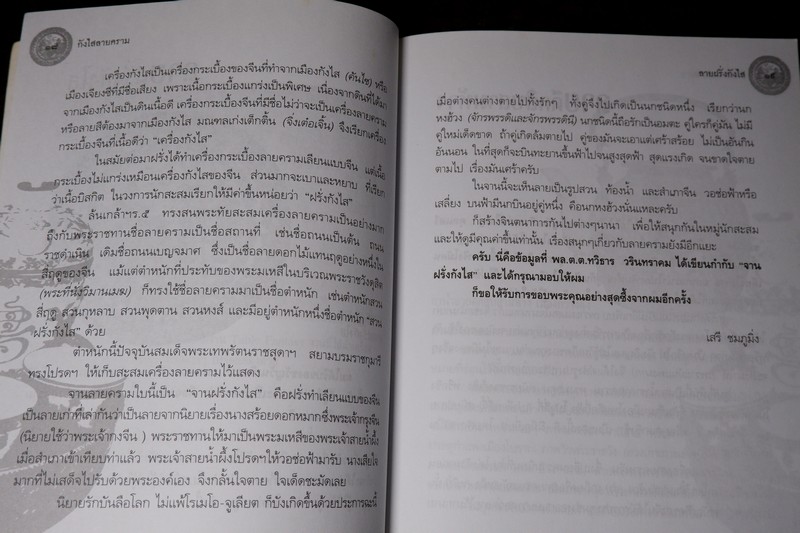 ๑๘
กังไสลายคราม
เครื่องกังไสเป็นเครื่องกระเบื้องของจีนที่ทำจากเมืองกังไส (คันไซ) หรือ
เมืองเจียงซีที่มีชื่อเสียง เพราะเนื้อกระเบื้องแกร่งเป็นพิเศษ เนื่องจากดินที่ได้มา
จากเมืองกังไสเป็นดินเนื้อดี เครื่องกระเบื้องจีนที่มีชื่อไม่ว่าจะเป็นเครื่องลายคราม
หรือลายสีต้องมาจากเมืองกังไส มณฑลเก่งเต๊กติ้น (จิ่งเต๋อเจิ้น) จึงเรียกเครื่อง
กระเบื้องจีนที่เนื้อดีว่า "เครื่องกังไส"
ในสมัยต่อมาฝรั่งได้ทำเครื่องกระเบื้องลายครามเลียนแบบจีน แต่เนื้อ
กระเบื้องไม่แกร่งเหมือนเครื่องกังไสของจีน ส่วนมากจะเบาและหยาบ ที่เรียก
ว่าเนื้อบิสกิต ในวงการนักสะสมเรียกให้มีค่าขึ้นหน่อยว่า "ฝรั่งกังไส"
ล้นเกล้าฯร.๕ ทรงสนพระทัยสะสมเครื่องลายครามเป็นอย่างมาก
ถึงกับพระราชทานชื่อลายครามเป็นชื่อสถานที่ เช่นชื่อถนนเป็นต้น ถนน
ราชดำเนิน เดิมชื่อถนนเบญจมาศ ซึ่งเป็นชื่อลายดอกไม้แทนฤดูอย่างหนึ่งใน
สี่ฤดูของจีน แม้แต่ตำหนักที่ประทับของพระมเหสีในบริเวณพระราชวังดุสิต
(พระที่นั่งวิมานเมฆ) ก็ทรงใช้ชื่อลายครามมาเป็นชื่อตำหนัก เช่นตำหนักสวน
สี่ฤดู สวนกุหลาบ สวนพุดตาน สวนหงส์ และมีอยู่ตำหนักหนึ่งชื่อตำหนัก "สวน
ฝรั่งกังไส" ด้วย
ตำหนักนี้ปัจจุบันสมเด็จพระเทพรัตนราชสุดาฯ สยามบรมราชกุมารี
ทรงโปรดฯ ให้เก็บสะสมเครื่องลายครามไว้แสดง
จานลายครามใบนี้เป็น "จานฝรั่งกังไส" คือฝรั่งทำเลียนแบบของจีน
เป็นลายเก่าที่เล่ากันว่าเป็นลายจากนิยายเรื่องนางสร้อยดอกหมากซึ่งพระเจ้ากรุงจีน
(นิยายใช้ว่าพระเจ้ากงจีน ) พระราชทานให้มาเป็นพระมเหสีของพระเจ้าสายน้ำผึ้ง
เมื่อสำเภาเข้าเทียบท่าแล้ว พระเจ้าสายน้ำผึ้งโปรดฯให้วอช่อฟ้ามารับ นางเสียใจ
มากที่ไม่เสด็จไปรับด้วยพระองค์เอง จึงกลั้นใจตาย ใจเด็ดชะมัดเลย
นิยายรักบันลือโลก ไม่แพ้โรเมโอ-จูเลียต ก็บังเกิดขึ้นด้วยประการฉะนี้
ลายฝรั่งกังไส
๑๙
เมื่อต่างคนต่างตายไปทั้งรักๆ ทั้งคู่จึงไปเกิดเป็นนกชนิดหนึ่ง เรียกว่านก
หงฮ้วง (จักรพรรดิและจักรพรรดินี) นกชนิดนี้ถือรักเป็นอมตะ คู่ใครก็คู่มัน ไม่มี
คู่ใหม่เด็ดขาด ถ้าคู่เกิดล้มตายไป คู่ของมันจะเอาแต่เศร้าสร้อย ไม่เป็นอันกิน
อันนอน ในที่สุดก็จะบินทะยานขึ้นฟ้าไปจนสูงสุดฟ้า สุดแรงเกิด จนขาดใจตาย
ตามไป เรื่องมันเศร้าครับ
ในจานนี้จะเห็นลายเป็นรูปสวน ท้องน้ำ และสำเภาจีน วอช่อฟ้าหรือ
เสลี่ยง บนฟ้ามีนกบินอยู่คู่หนึ่ง คือนกหงฮ้วงนั่นแหละครับ
ก็สร้างจินตนาการกันไปต่างๆนานา เพื่อให้สนุกกันในหมู่นักสะสม
และให้ดูมีคุณค่าขึ้นเท่านั้น เรื่องสนุกๆเกี่ยวกับลายครามยังมีอีกแยะ
ครับ นี่คือข้อมูลที่ พล.ต.ต.ทวิธาร วรินทราคม ได้เขียนกำกับ "จาน
ฝรั่งกังไส" และได้กรุณามอบให้ผม
ก็ขอให้รับการขอบพระคุณอย่างสุดซึ้งจากผมอีกครั้ง
เสรี ชมภูมิ่ง